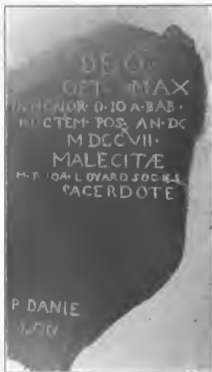 DEO
OPT· MAX
IN HONOR· D· IOA· BAB·
ECTEM· POS· AN· DC
MDCCVII·
MALECITÆ
M· P· IOA· LOYARD SOC IES
SACERDOTE
P DANIE
LOU